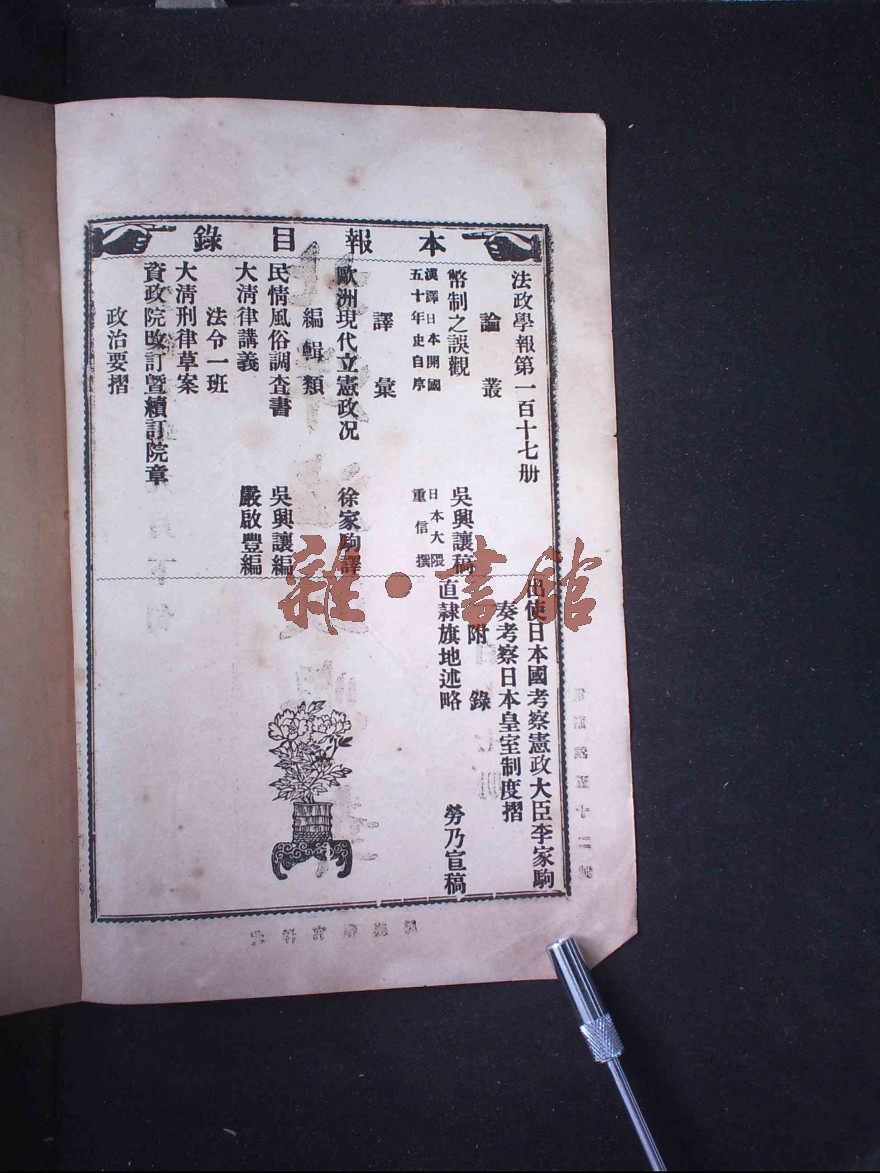 本報目錄
法政學報第一百十七册
論叢
幣制之誤觀 吳興讓稿
漢譯日本開國五十年史自序 日本大隈重信撰
譯彙
歐洲現代立憲政况 徐家駒譯
編輯類
民情風俗調查書 吳興讓編
大清律講義 嚴啟豐編
法令一班
大清刑律草案
資政院改訂暨續訂院章
政治要摺
出使日本國考察憲政大臣李家駒
奏考察日本皇室制度摺
附錄
直隸旗地述略 勞乃宣稿
雜·書館